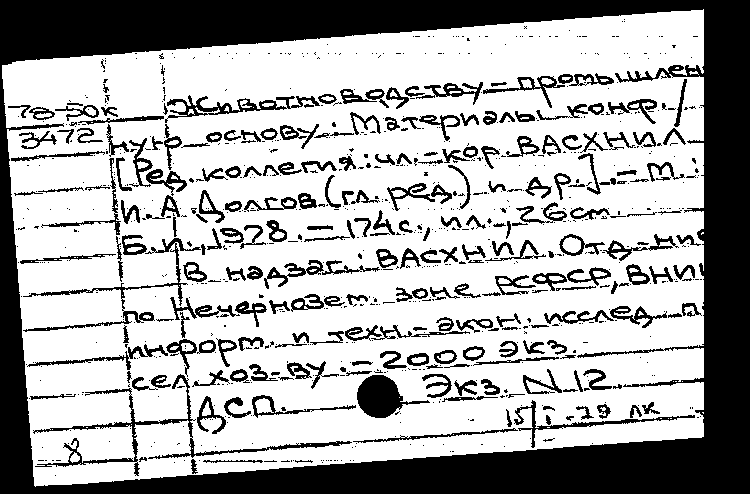 78-50к Животноводству - промышлен
3472 ную основу: Материалы конф. /
[Ред. коллегия: чл.-кор. ВАСХНИЛ
И.А. Долгов (гл. ред.) и др.]. - М.:
Б.и., 1978. - 174с., ил.; 26см.
В надзаг.: ВАСХНИЛ. Отд-ние
по Нечернозем. зоне РСФСР, ВНИИ
информ. и техн.-экон. исслед. п
сел. хоз-ву. - 2000 экз.
ДСП. Экз. N 12
15/I-79 лк
8